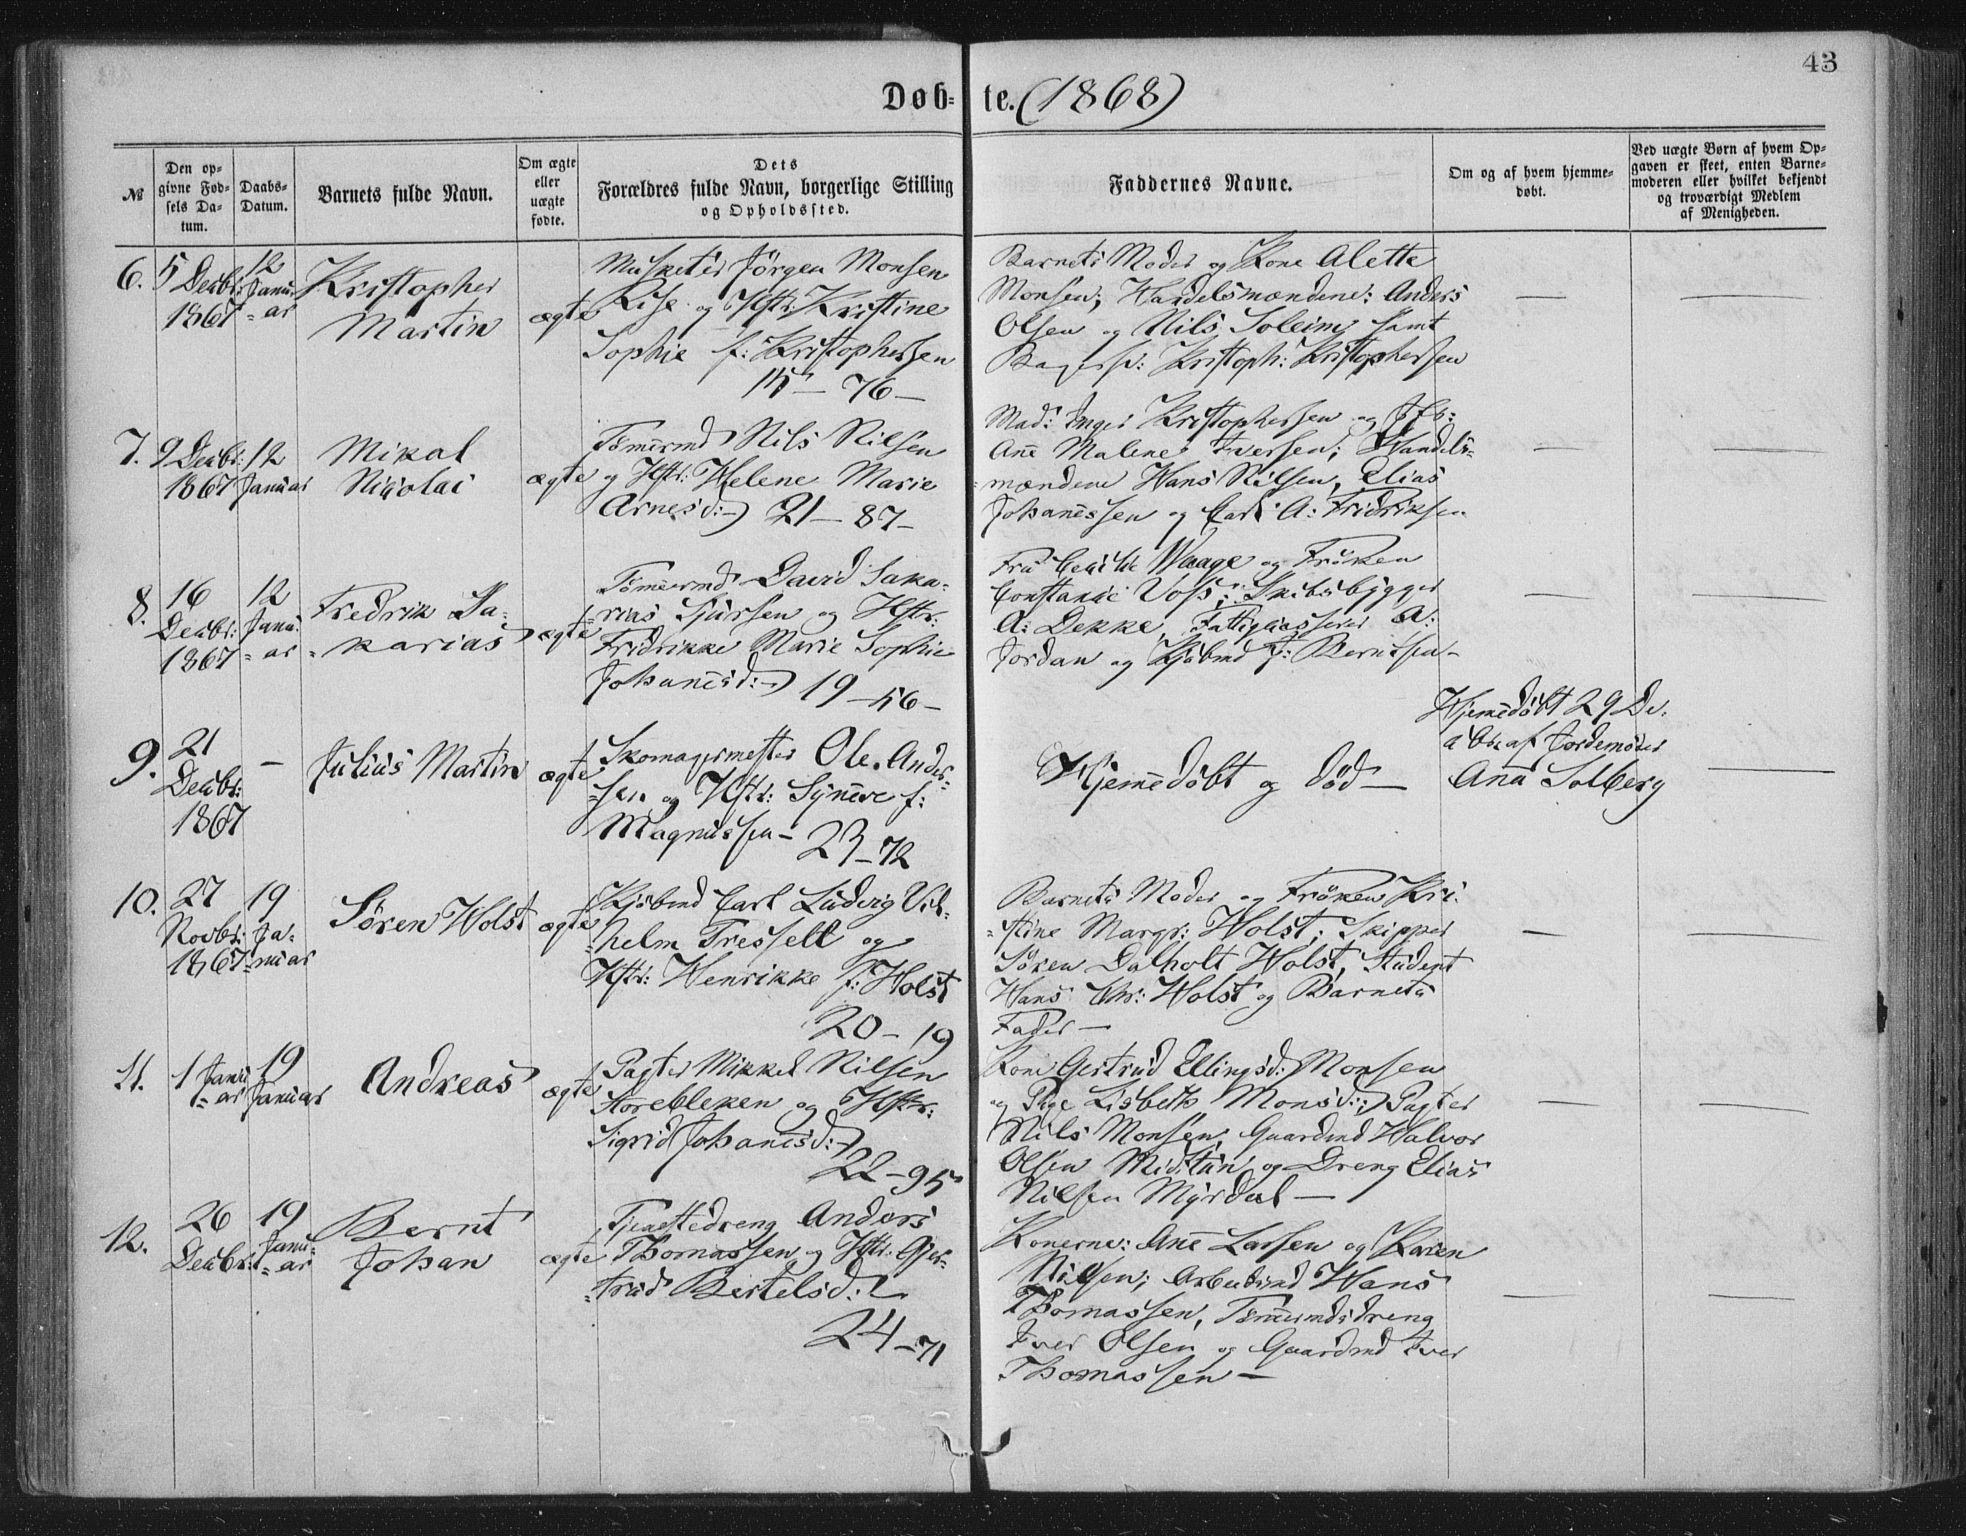 43
Døb- te. (1868)
№
Den op-
givne Fød-
sels Da-
tum.
Daabs-
Datum.
Barnets fulde Navn.
Om ægte
eller
uægte
fødte.
Dets
Forældres fulde Navn, borgerlige Stilling
og Opholdssted.
Faddernes Navne.
Om og af hvem hjemme-
døbt.
Ved uægte Børn af hvem Op-
gaven er skeet, enten Barne-
moderen eller hvilket bekjendt
og troværdigt Medlem
af Menigheden.
6.
5 Decbr:
1867
12
Janu-
=ar
Kristopher
Martin
ægte
Musketer Jörgen Monsen
Rise og Hstr: Kristine
Sophie f: Kristophersen
15 - 76 -
Barnets Moder og Kone Alette
Monsen; Handelsmændene: Anders
Olsen og Nils Soleim samt
Kristoph: Kristophersen
7.
9 Decbr:
1867
12
Januar
Mikal
Nicolai
ægte
Tömermd Nils Nilsen
og Hstr: Helene Marie
Arnesd: 21 - 87 -
Mad: Inger Kristophersen og Jfr:
Ane Malene Iversen; Handels-
=mændene Hans Nilsen, Elias
Johanessen og Carl A: Fridriksen
8.
16
Decbr:
1867
12
Janu-
=ar
Fredrik Sa-
=karias
ægte
Tömermd David Saka-
=rias Sjursen og Hstr:
Fridrikke Marie Sophie
Johanesd: 19 - 56 -
Fru Cecilie Waage og Fröken
Constance Voss; Skibsbygger
A: Dekke, Fattigkasserer A:
Jordan og Kjöbmd J: Berntsen -
9.
21
Decbr:
1867
-
Julius Martin
ægte
Skomagermester Ole Anders-
=sen og Hstr: Synneve f:
Magnussen - 23 - 72
Hjemedöbt og död -
Hjemedöbt 29 De-
cbr af Jordemoder
Ana Solberg
10.
27
Novbr:
1867
19
Ja-
=nuar
Sören Holst
ægte
Kjöbmd Carl Ludvig Vil-
helm Tresselt og
Hstr: Henrikke f: Holst
20 - 19
Barnets Moder og Fröken Kri-
=stine Margr: Holst; Skipper
Sören Dalholt Holst, Student
Hans Chr: Holst og Barnets
Fader -
11.
1 Janu
=ar
19
Januar
Andreas
ægte
Pagter Mikkel Nilsen
Storebleken og Hstr:
Sigrid Johanesd:
22 - 95
Kone Gertrud Ellingsd: Monsen
og Pige Lisbeth Monsd:; Pagter
Nils Monsen, Gaardmd Halvor
Olsen Midttun og Dreng Elias
Nilsen Myrdal -
12.
26
Decbr:
19
Janu-
=ar
Bernt
Johan
ægte
Tjenestedreng Anders
Thomassen og Hstr. Gjer-
=trud Bertelsd:
24 - 71
Konerne: Ane Larsen og Karen
Nilsen; Arbeidsmd Hans
Thomassen, Tömermdsdreng
Iver Olsen og Gaardmd Iver
Thomassen -